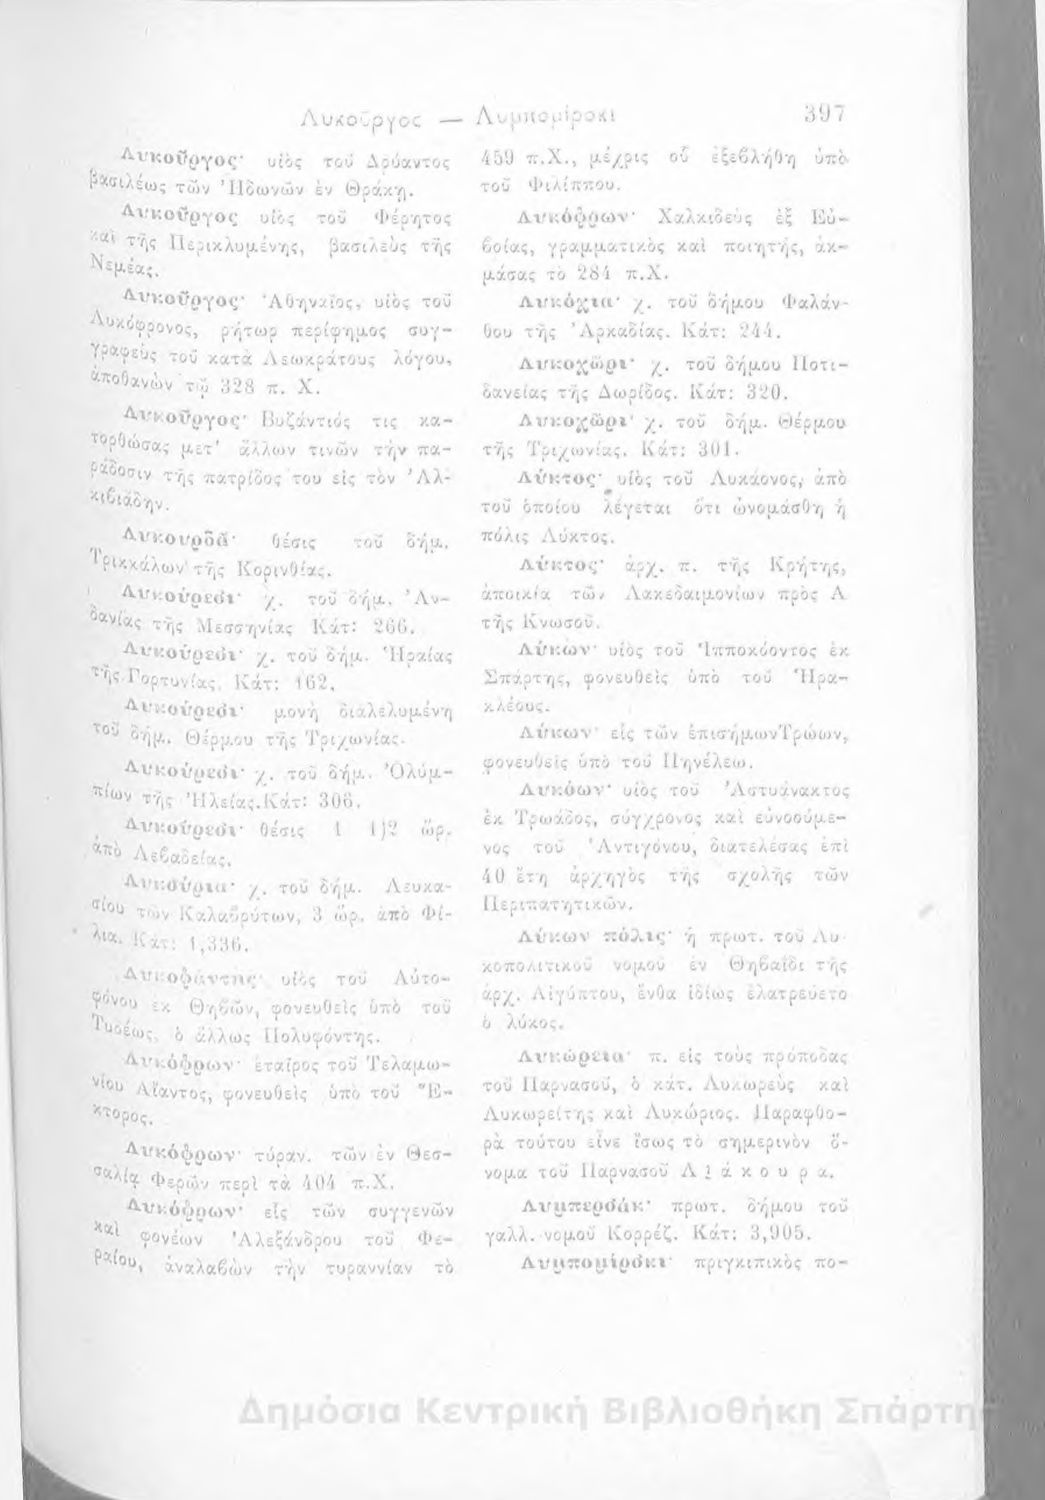 Λυκοῦργος — Λυμπομίρσκι 397
Λυκοῦργος· υἱὸς τοῦ Δρύαντος
βασιλέως τῶν Ἠδωνῶν ἐν Θράκῃ.
Λυκοῦργος υἱὸς τοῦ Φέρητος
καὶ τῆς Περικλυμένης, βασιλεὺς τῆς
Νεμέας.
Λυκοῦργος· Ἀθηναῖος, υἱὸς τοῦ
Λυκόφρονος, ρήτωρ περίφημος συγ-
γραφεὺς τοῦ κατὰ Λεωκράτους λόγου,
ἀποθανὼν τῷ 328 π. Χ.
Λυκοῦργος· Βυζάντιός τις κα-
τορθώσας μετ' ἄλλων τινῶν τὴν πα-
ράδοσιν τῆς πατρίδος του εἰς τὸν Ἀλ-
κιβιάδην.
Λυκουρδᾶ· θέσις τοῦ δήμ.
Τρικκάλων τῆς Κορινθίας.
Λυκούρεσι· χ. τοῦ δήμ. Ἀν-
δανίας τῆς Μεσσηνίας Κάτ: 266.
Λυκούρεσι· χ. τοῦ δήμ. Ἡραίας
τῆς Γορτυνίας. Κάτ: 162.
Λυκούρεσι· μονὴ διαλελυμένη
τοῦ δήμ. Θέρμου τῆς Τριχωνίας.
Λυκούρεσι· χ. τοῦ δήμ. Ὀλύμ-
πίων τῆς Ἠλείας. Κάτ: 306.
Λυκούρεσι· θέσις 1 1)2 ὥρ.
ἀπὸ Λεβαδείας.
Λυκούρια· χ. τοῦ δήμ. Λευκα-
σίου τῶν Καλαβρύτων, 3 ὥρ. ἀπὸ Φί-
λια. Κάτ: 1,336.
Λυκοφόντης· υἱὸς τοῦ Αὐτο-
φόνου ἐκ Θηβῶν, φονευθεὶς ὑπὸ τοῦ
Τυδέως, ὁ ἄλλως Πολυφόντης.
Λυκόφρων· ἑταῖρος τοῦ Τελαμω-
νίου Αἴαντος, φονευθεὶς ὑπὸ τοῦ Ἕ-
κτορος.
Λυκόφρων· τύραν. τῶν ἐν Θεσ-
σαλίᾳ Φερῶν περὶ τὰ 404 π.Χ.
Λυκόφρων· εἷς τῶν συγγενῶν
καὶ φονέων Ἀλεξάνδρου τοῦ Φε-
ραίου, ἀναλαβὼν τὴν τυραννίαν τὸ
459 π.Χ., μέχρις οὗ ἐξεβλήθη ὑπὸ
τοῦ Φιλίππου.
Λυκόφρων· Χαλκιδεὺς ἐξ Εὐ-
βοίας, γραμματικὸς καὶ ποιητής, ἀκ-
μάσας τὸ 284 π.Χ.
Λυκόχια· χ. τοῦ δήμου Φαλάν-
θου τῆς Ἀρκαδίας. Κάτ: 244.
Λυκοχῶρι· χ. τοῦ δήμου Ποτι-
δανείας τῆς Δωρίδος. Κάτ: 320.
Λυκοχῶρι· χ. τοῦ δήμ. Θέρμου
τῆς Τριχωνίας. Κάτ: 301.
Λύκτος· υἱὸς τοῦ Λυκάονος, ἀπὸ
τοῦ ὁποίου λέγεται ὅτι ὠνομάσθη ἡ
πόλις Λύκτος.
Λύκτος· ἀρχ. π. τῆς Κρήτης,
ἀποικία τῶν Λακεδαιμονίων πρὸς Α
τῆς Κνωσοῦ.
Λύκων· υἱὸς τοῦ Ἱπποκόοντος ἐκ
Σπάρτης, φονευθεὶς ὑπὸ τοῦ Ἡρα-
κλέους.
Λύκων· εἷς τῶν ἐπισήμων Τρώων,
φονευθεὶς ὑπὸ τοῦ Πηνέλεω.
Λυκόων· υἱὸς τοῦ Ἀστυάνακτος
ἐκ Τρωάδος, σύγχρονος καὶ εὐνοούμε-
νος τοῦ Ἀντιγόνου, διατελέσας ἐπὶ
40 ἔτη ἀρχηγὸς τῆς σχολῆς τῶν
Περιπατητικῶν.
Λύκων πόλις· ἡ πρωτ. τοῦ Λυ-
κοπολιτικοῦ νομοῦ ἐν Θηβαΐδι τῆς
ἀρχ. Αἰγύπτου, ἔνθα ἰδίως ἐλατρεύετο
ὁ λύκος.
Λυκώρεια· π. εἰς τοὺς πρόποδας
τοῦ Παρνασοῦ, ὁ κάτ. Λυκωρεὺς καὶ
Λυκωρείτης καὶ Λυκώριος. Παραφθο-
ρὰ τούτου εἶνε ἴσως τὸ σημερινὸν ὄ-
νομα τοῦ Παρνασοῦ Λ ι ά κ ο υ ρ α.
Λυμπερσάκ· πρωτ. δήμου τοῦ
γαλλ. νομοῦ Κορρέζ. Κάτ: 3,905.
Λυμπομίρσκι· πριγκιπικὸς πο-
Δημόσια Κεντρική Βιβλιοθήκη Σπάρτης